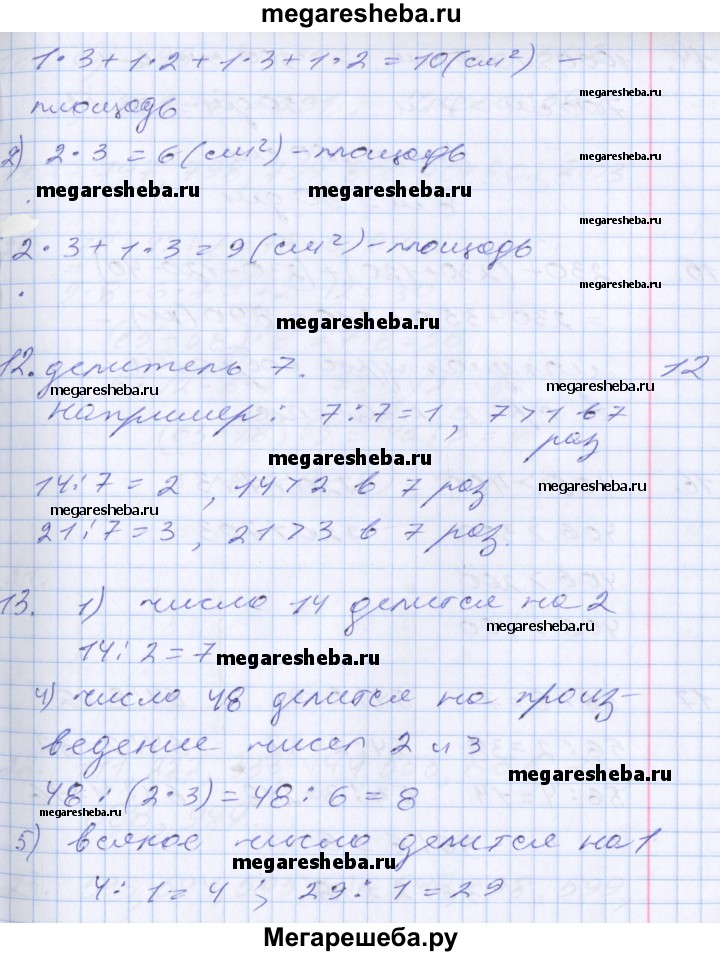 megaresheba.ru
1·3+1·2+1·3+1·2=10(см²) –
площадь
megaresheba.ru
2) 2·3=6(см²)–площадь
megaresheba.ru
megaresheba.ru megaresheba.ru
megaresheba.ru
2·3+1·3=9(см²)–площадь
megaresheba.ru
12. делитель 7. 12
megaresheba.ru megaresheba.ru
например: 7:7=1, 7>1 в 7
раз
megaresheba.ru
14:7=2, 14>2 в 7 раз
megaresheba.ru
21:7=3, 21>3 в 7 раз.
13. 1) число 14 делится на 2
megaresheba.ru
14:2=7
megaresheba.ru
4) число 48 делится на произ-
ведение чисел 2 и 3
megaresheba.ru
48:(2·3)=48:6=8
megaresheba.ru
5) всякое число делится на 1
megaresheba.ru
4:1=4; 29:1=29
megaresheba.ru
Мегарешеба.ру